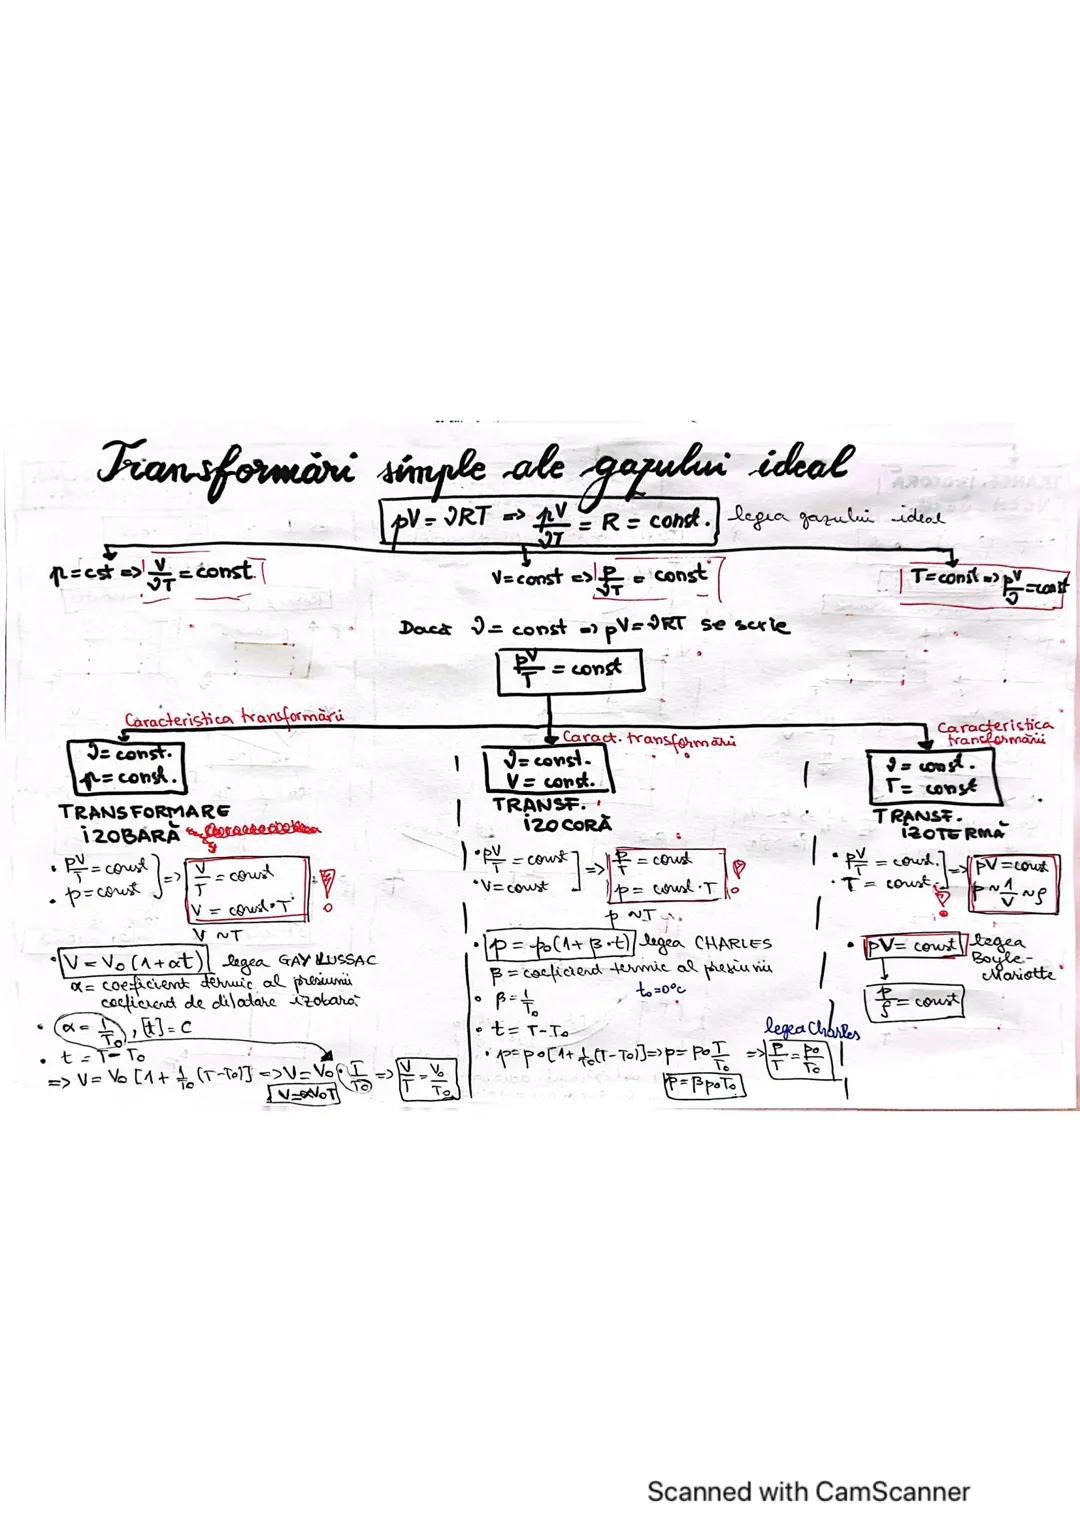 Transformări simple ale gazului ideal
pV = νRT => pV/νT = R = const. legea gazului ideal
p=cst => V/νT = const.
V=const => P/νT = const
T=const => pV/ν = const
Dacă ν = const => pV=νRT se scrie
pV/T = const
Caracteristica transformării
ν= const.
p= const.
TRANSFORMARE
IZOBARĂ
• pV/T = const
• p=const
=> V/T = const
V = const·T !
V ~T
• V = V₀ (1+αt) legea GAY LUSSAC
α = coeficient termic al presiunii
coeficient de dilatare izobară
• α = 1/T₀, [t] = C
• t = T - T₀
=> V = V₀ [1 + 1/T₀ (T-T₀)] => V = V₀ · T/T₀ => V/T = V₀/T₀
V=αV₀T
Caract. transformării
ν= const.
V = const.
TRANSF.
IZOCORĂ
• pV/T = const
• V=const
=> P/T = const
p= const·T !
p ~T
• p = p₀(1+ β·t) legea CHARLES
β = coeficient termic al presiunii
t₀=0°C
• β = 1/T₀
• t = T-T₀
legea Charles
• p=p₀[1+ 1/T₀(T-T₀)] => p= p₀ T/T₀ => P/T = p₀/T₀
p=βp₀T₀
Caracteristica
transformării
ν = const.
T= const
TRANSF.
IZOTERMĂ
• pV/T = const.
• T = const. !
=> pV=const
p ~ 1/V ~ ρ
• pV= const legea
Boyle-
Mariotte
p/ρ = const
Scanned with CamScanner